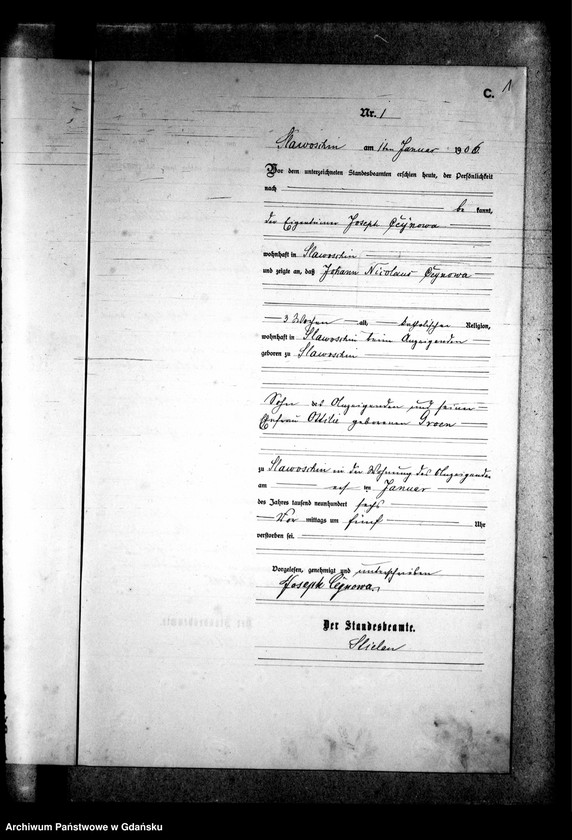 C. 1
Nr. 1
Slawoschin am 1ten Januar 1906.
Vor dem unterzeichneten Standesbeamten erschien heute, der Persönlichkeit
nach
be kannt,
der Eigentümer Joseph Ceynowa
wohnhaft in Slawoschin
und zeigte an, daß Johann Nicolaus Ceynowa
3 Wochen alt, katholischer Religion,
wohnhaft in Slawoschin beim Anzeigenden
geboren zu Slawoschin
Sohn des Anzeigenden und seiner
Ehefrau Ottilie geborenen Groen
zu Slawoschin in der Wohnung des Anzeigenden
am ersten Januar
des Jahres tausend neunhundert sechs
Vor mittags um fünf Uhr
verstorben sei.
Vorgelesen, genehmigt und unterschrieben
Joseph Ceynowa.
Der Standesbeamte.
Archiwum Państwowe w Gdańsku